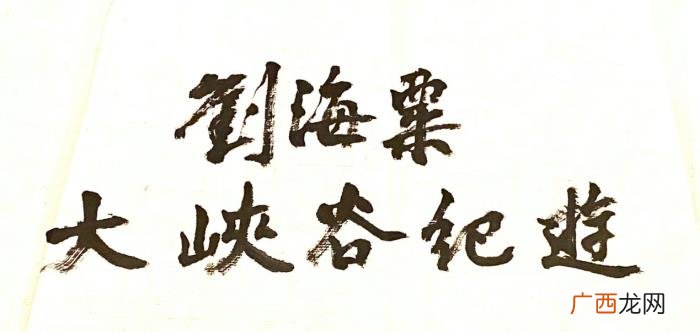 劉海粟
大峽谷紀遊
广西龙网